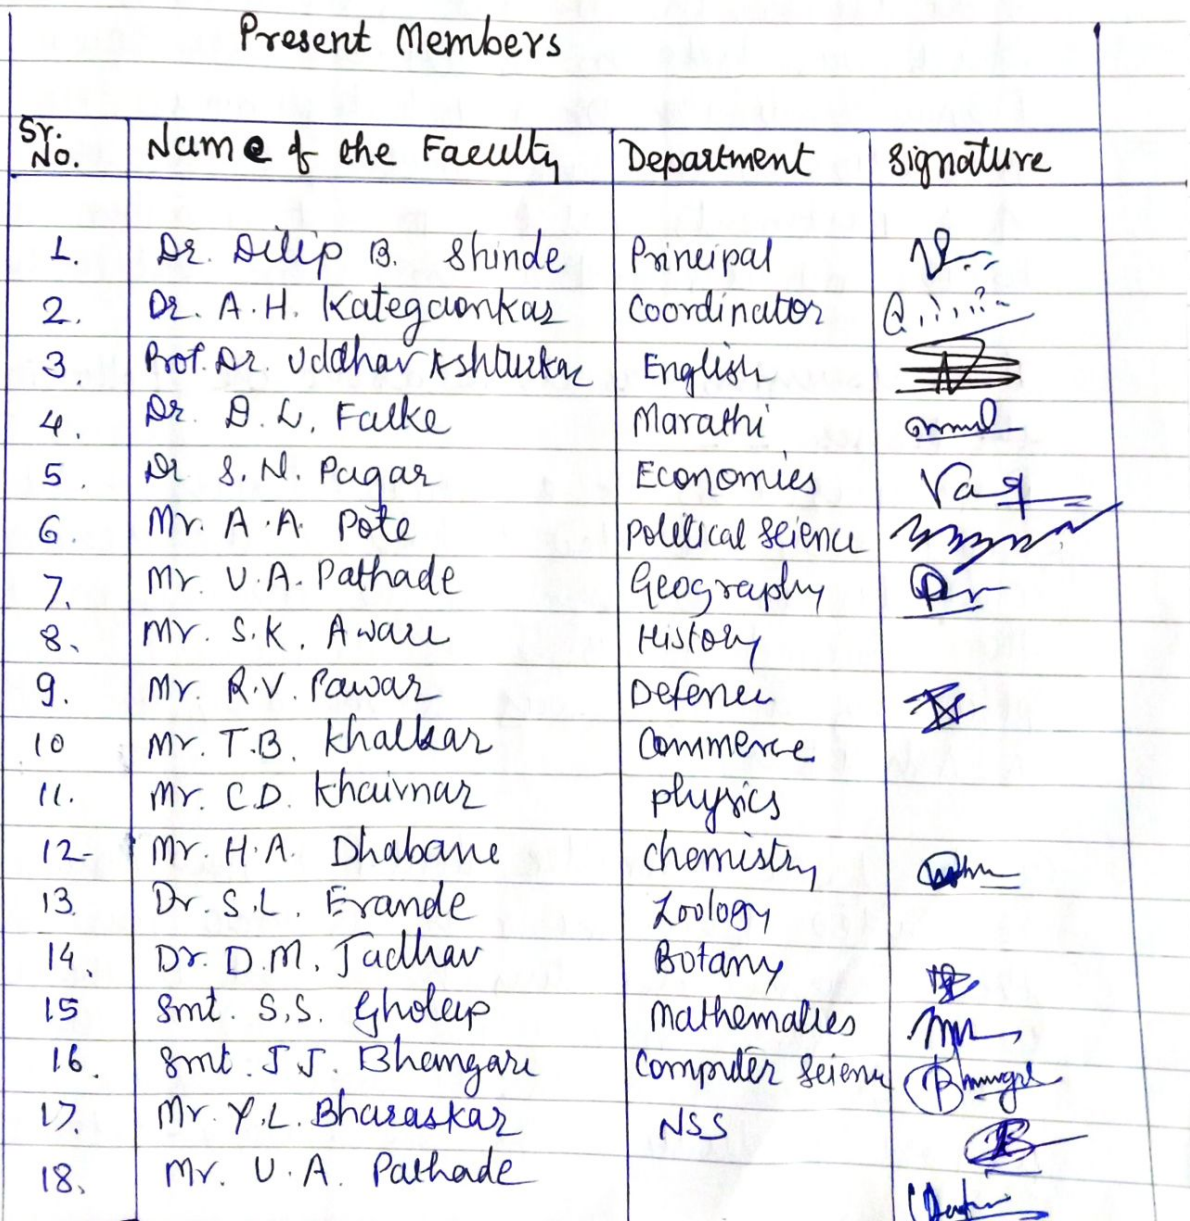 Present Members
Sr. No. Name of the Faculty Department Signature
1. Dr. Dilip B. Shinde Principal
2. Dr. A.H. Kategaonkar Coordinator
3. Prof. Dr. Uddhav Ashturkar English
4. Dr. D.L. Falke Marathi
5. Dr S.N. Pagar Economics
6. Mr. A.A. Pote Political Science
7. Mr. U.A. Pathade Geography
8. Mr. S.K. Aware History
9. Mr. R.V. Pawar Defence
10 Mr. T.B. Khalkar Commerce
11. Mr. C.D. Khairnar physics
12 Mr. H.A. Dhabane chemistry
13. Dr. S.L. Erande Zoology
14. Dr. D.M. Jadhav Botany
15 Smt. S.S. Gholap Mathematics
16. Smt. J J. Bhangare Computer Science
17. Mr. Y.L. Bharaskar NSS
18. Mr. U.A. Pathade